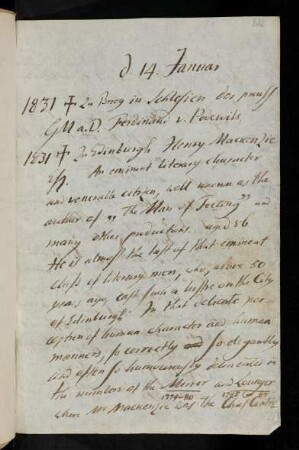 d 14. Januar
1831 ✝ Zu Brieg in Schlesien der preuss
GM a.D. Ferdinand v.
1831 ✝ Zu Edinburgh Henry Mackenzie
Esq. An eminent literary character
and venerable citizen, well known as the
author of „The Man of Feeling" and
many other productions. aged 86
He is almost the last of that eminent
class of literary men, who, above 50
years ago, cast such a lustre on the City
of Edinburgh. In that delicate per-
ception of human character and human
manners, so correctly and so elegantly
and often so humourously delineated in
the numbers of the Mirror and Lounger
1779-80 1785
when Mr Mackenzie was the Chief